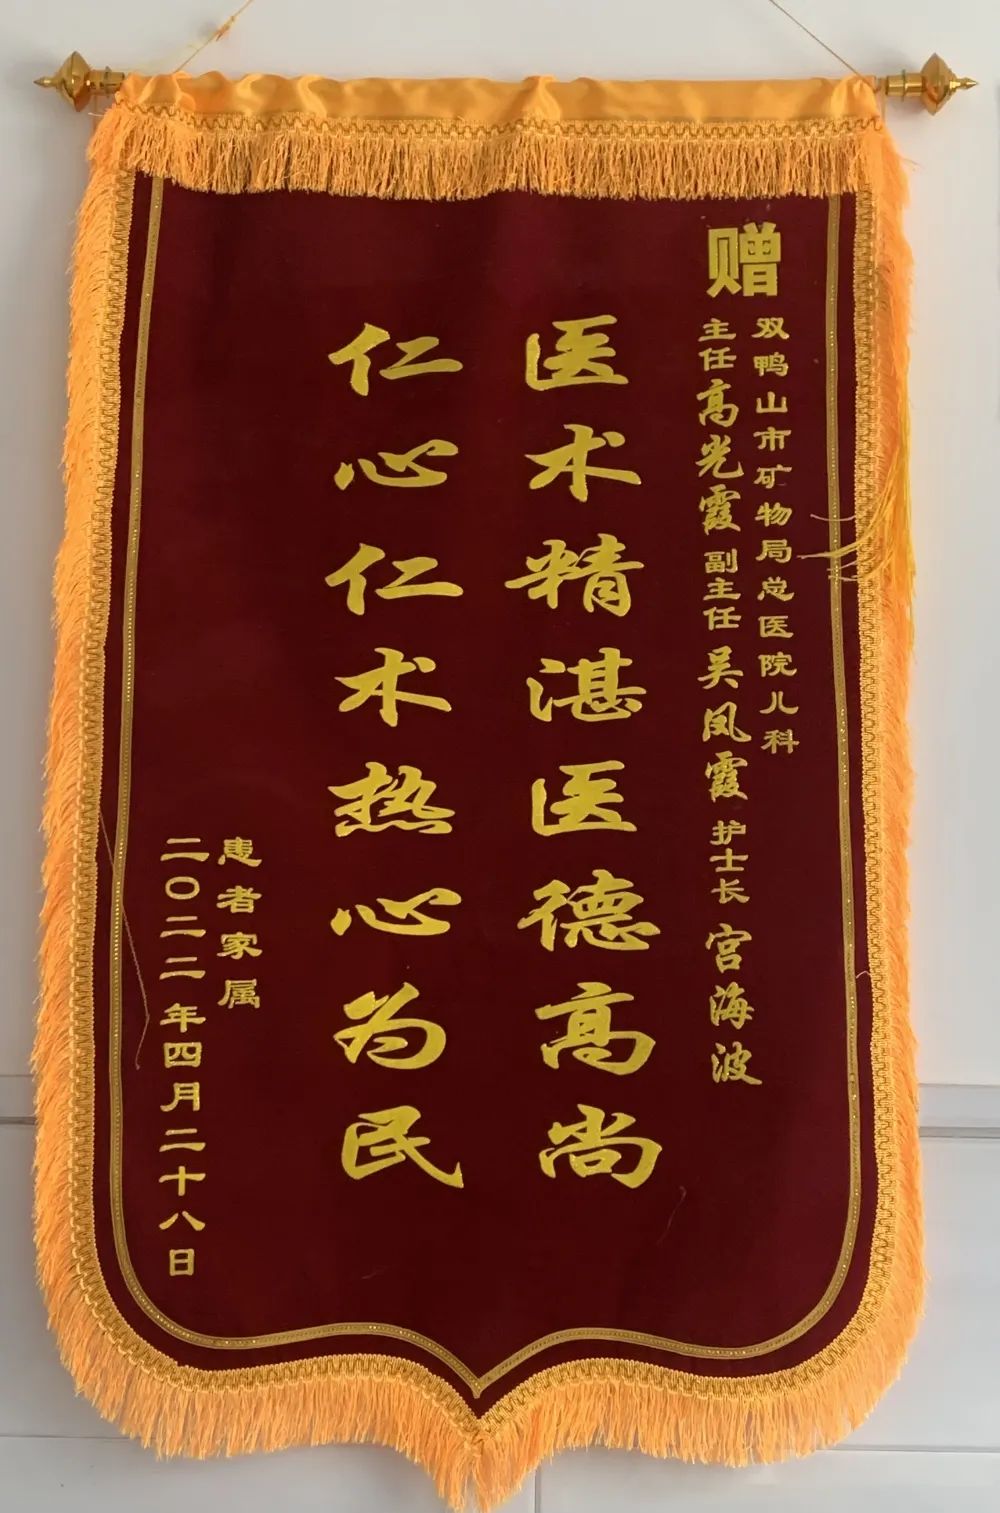 赠
双鸭山市矿物局总医院儿科
主任高光霞副主任吴凤霞护士长宫海波
医术精湛医德高尚
仁心仁术热心为民
患者家属
二〇二二年四月二十八日